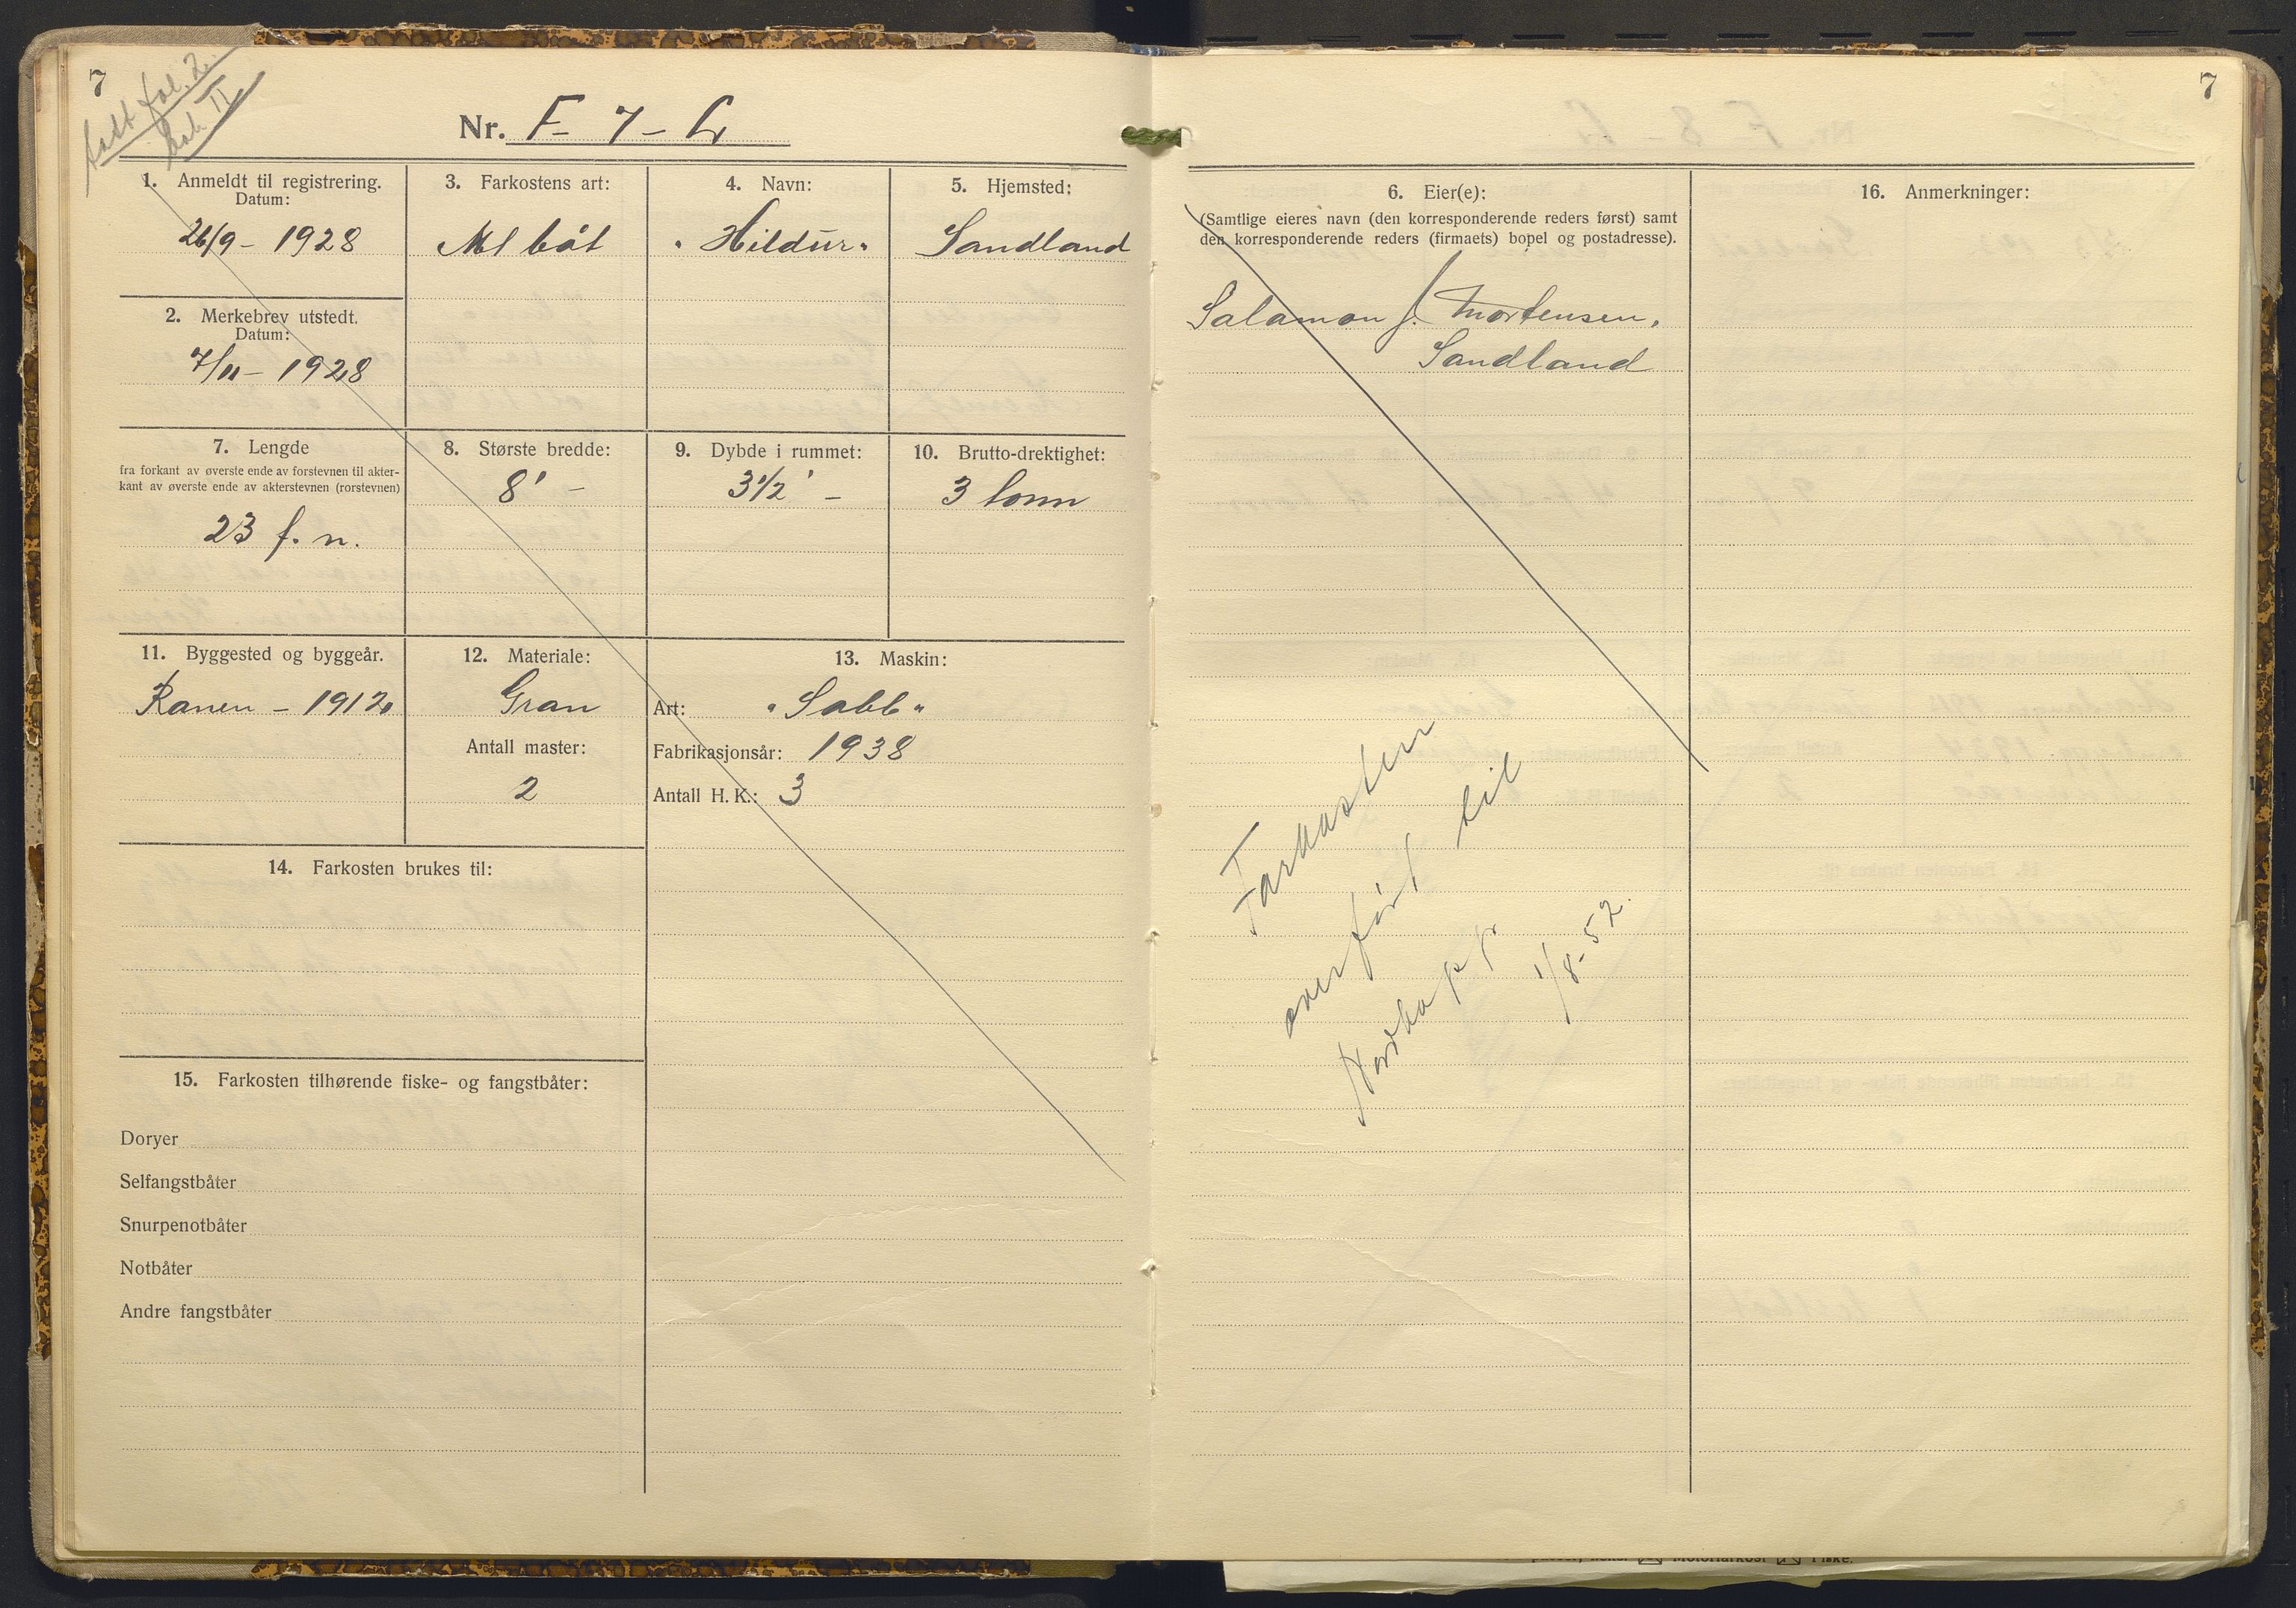 7
fol. 2.
bok II
Nr. F - 7 - L
1. Anmeldt til registrering.
Datum:
26/9 - 1928
2. Merkebrev utstedt.
Datum:
7/11 - 1928
3. Farkostens art:
M båt
4. Navn:
"Hildur"
5. Hjemsted:
Sandland
7. Lengde
fra forkant av øverste ende av forstevnen til akter-
kant av øverste ende av akterstevnen (rorstevnen)
23 f. n.
8. Største bredde:
8' -
9. Dybde i rummet:
3 1/2' -
10. Brutto-drektighet:
3 tonn
11. Byggested og byggeår.
Ranen - 1912
12. Materiale:
Gran
Antall master:
2
13. Maskin:
Art: "Sabb"
Fabrikasjonsår: 1938
Antall H. K.: 3
14. Farkosten brukes til:
15. Farkosten tilhørende fiske- og fangstbåter:
Doryer
Selfangstbåter
Snurpenotbåter
Notbåter
Andre fangstbåter
7
6. Eier(e):
(Samtlige eieres navn (den korresponderende reders først) samt
den korresponderende reders (firmaets) bopel og postadresse).
Salamon J. Mortensen,
Sandland
Farkosten
overført til
Nordkapp pr
1/8-52.
16. Anmerkninger:
Motorfarkost
Fiske.